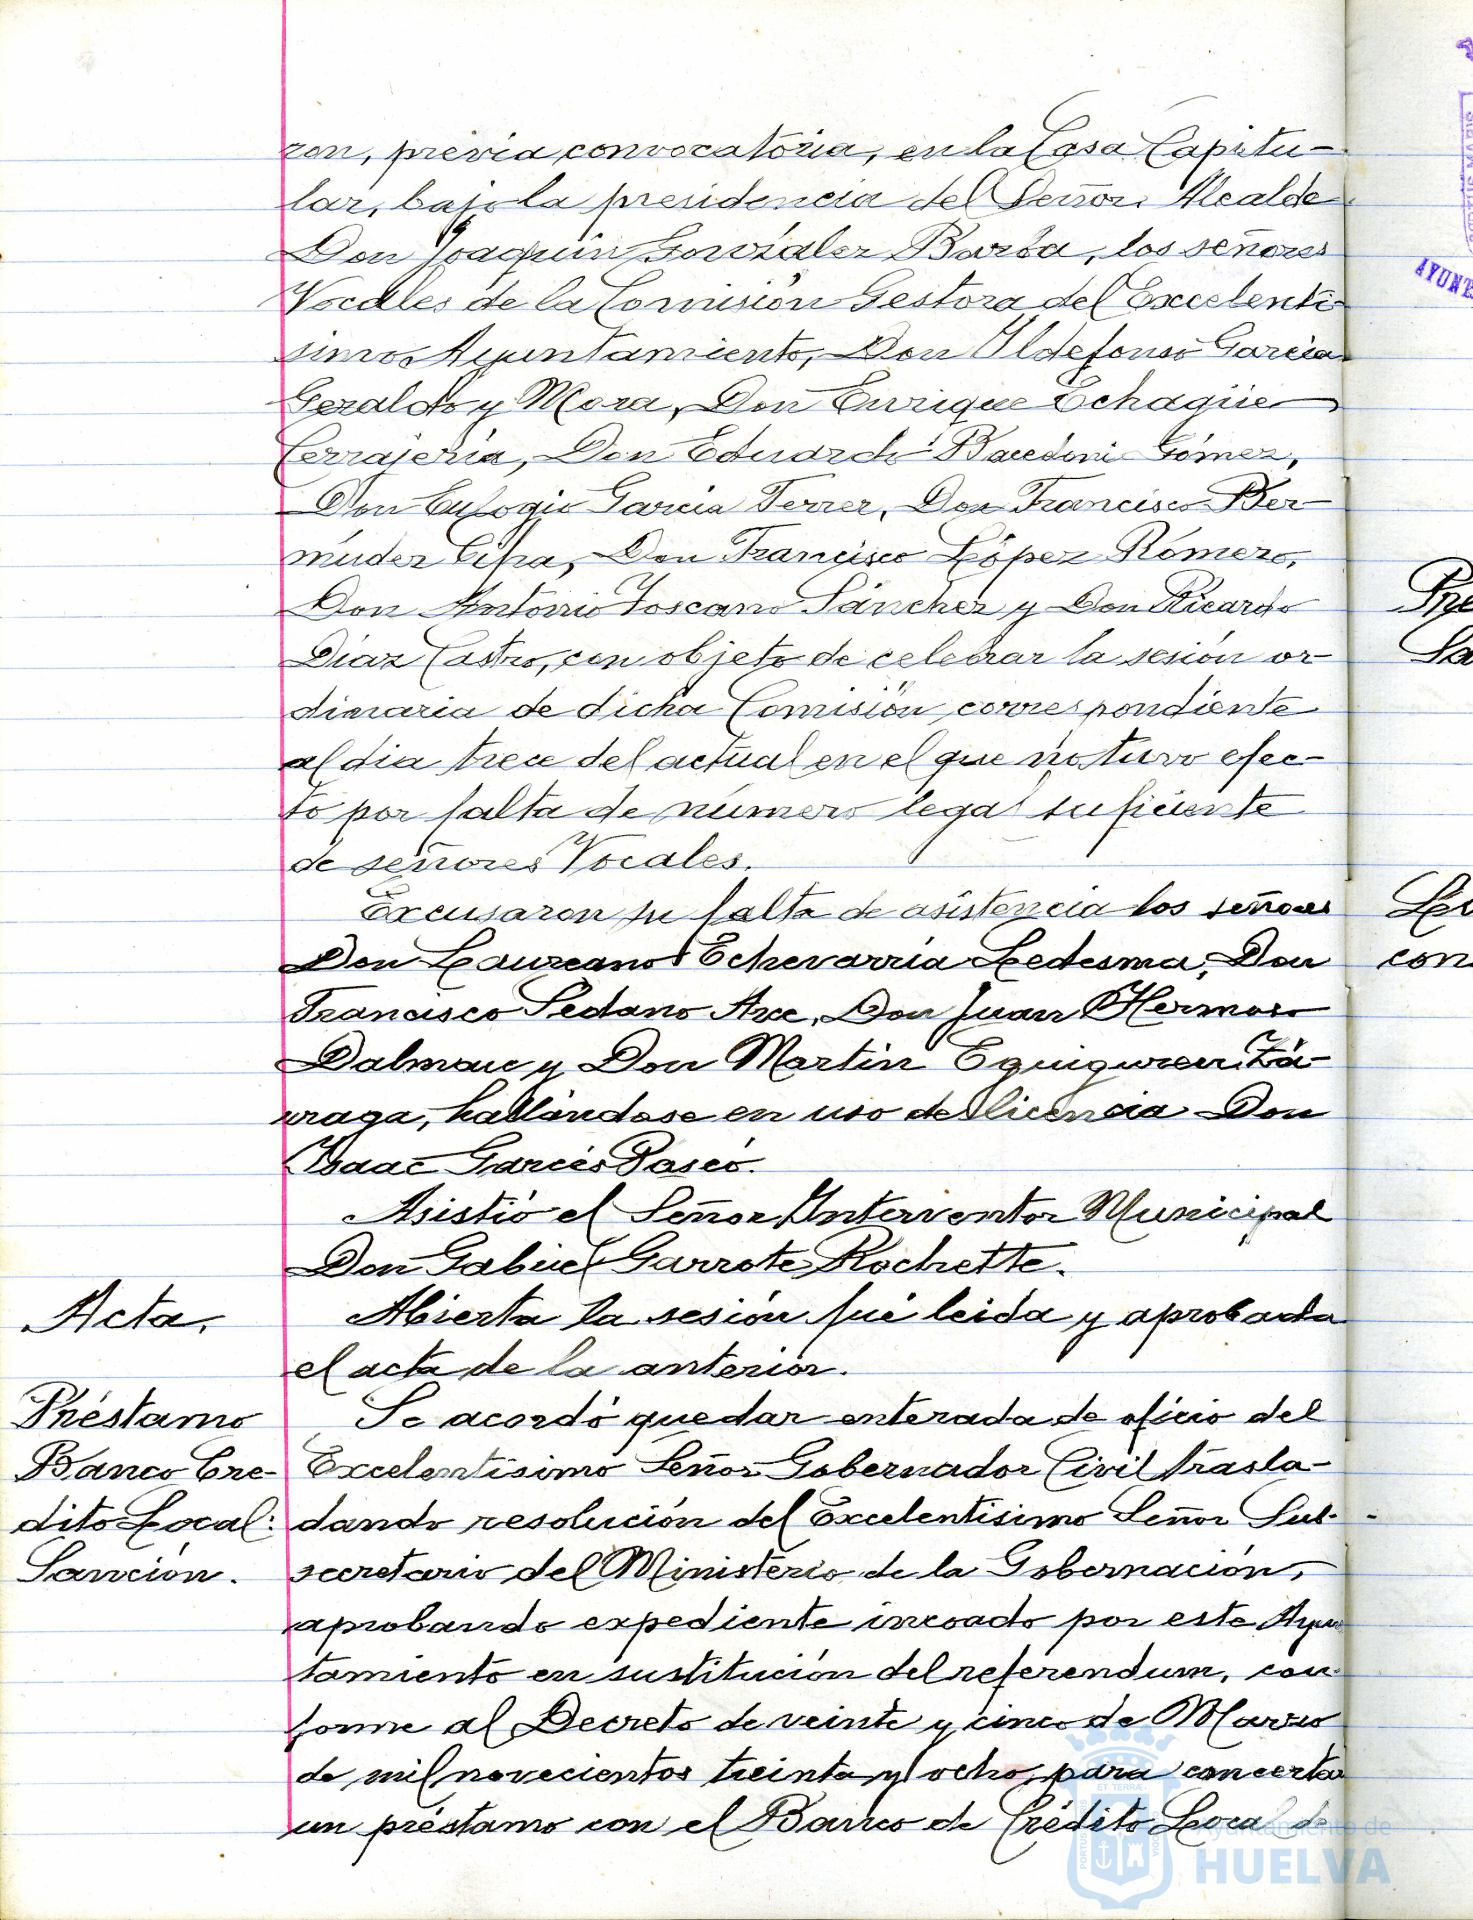 ron, previa convocatoria, en la Casa Capitu-
lar, bajo la presidencia del Señor Alcalde
Don Joaquín González Barba, los señores
Vocales de la Comisión Gestora del Excelentí-
simo Ayuntamiento, Don Ildefonso García
Geraldo y Mora, Don Enrique Echagüe
Cerrajería, Don Eduardo Bacedoni Gómez,
Don Eulogio García Ferrer, Don Francisco Ber-
múdez Cifra, Don Francisco López Romero,
Don Antonio Toscano Sánchez y Don Ricardo
Díaz Castro, con objeto de celebrar la sesión or-
dinaria de dicha Comisión correspondiente
al dia trece del actual en el que no tuvo efec-
to por falta de número legal suficiente
de señores Vocales.
Excusaron su falta de asistencia los señores
Don Laureano Echevarría Ledesma, Don
Francisco Sedano Arce, Don Juan Hermoso
Dalmau y Don Martín Eguiguren Zá-
rraga, hallándose en uso de licencia Don
Isaac Garcés Paseo.
Asistió el Señor Interventor Municipal
Don Gabriel Garrote Rochette.
Acta.
Abierta la sesión fué leida y aprobada
el acta de la anterior.
Préstamo
Banco Cre-
dito Local:
Sanción.
Se acordó quedar enterada de oficio del
Excelentísimo Señor Gobernador Civil trasla-
dando resolución del Excelentísimo Señor Sub-
secretario del Ministerio de la Gobernación,
aprobando expediente incoado por este Ayun
tamiento en sustitución del referendum, con-
forme al Decreto de veinte y cinco de Marzo
de mil novecientos treinta y ocho, para concertar
un préstamo con el Banco de Crédito Local de
Ayuntamiento de
HUELVA